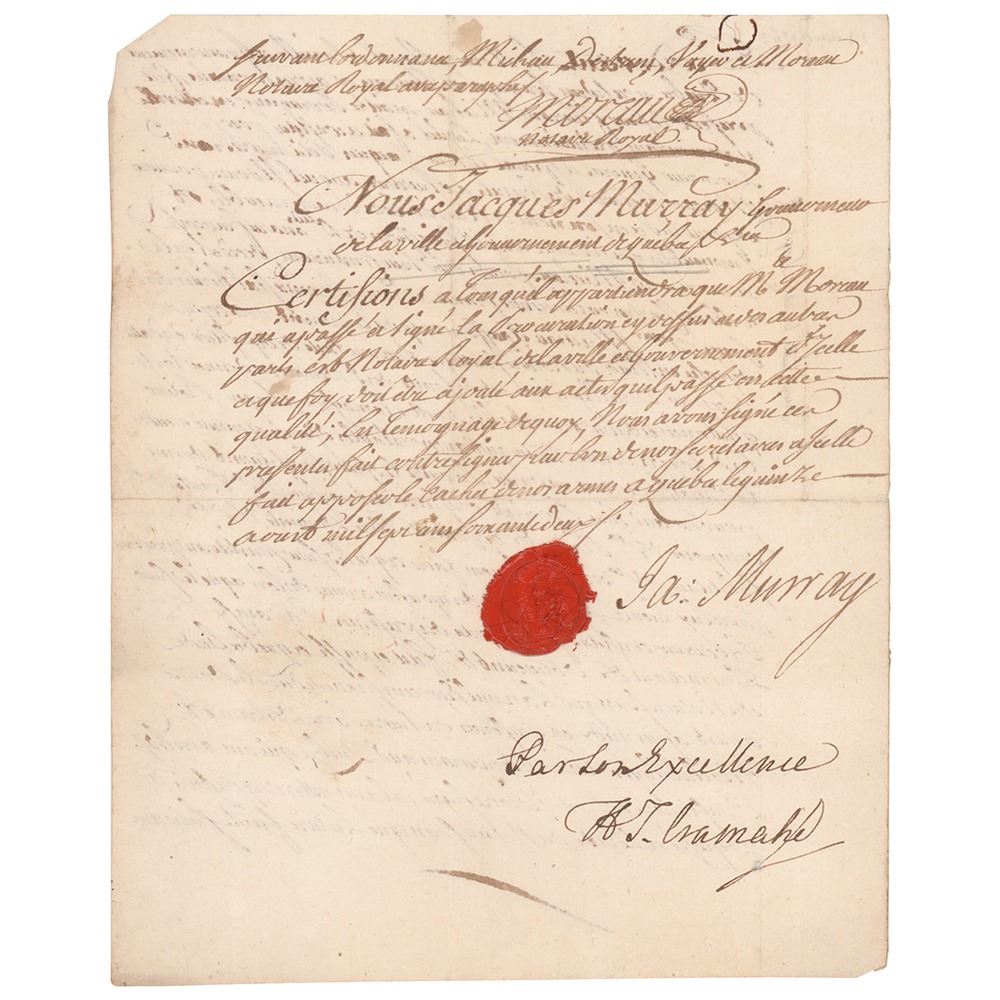 suivant l'ordonnance, Michau, Voyer et Moreau
Notaire Royal avec paraphe
Moreau
Notaire Royal
Nous Jacques Murray Gouverneur
de la ville et Gouvernement de Québec &ca
Certifions a tous qu'il appartiendra que Me Moreau
qui a passé et signé la Procuration cy dessus et des autres
parts est Notaire Royal de la ville et Gouvernement d'Icelle
et que foy doit être ajoutée aux actes qu'il passe en cette
qualité; En Temoignage de quoy Nous avons signé ces
presentes fait contresigner par l'un de nos secretaires a Icelle
fait apposer le cachet de nos armes a Québec le quinze
aoust mil sept cens soixante deux
Ja: Murray
Par son Excellence
H T. Cramahé